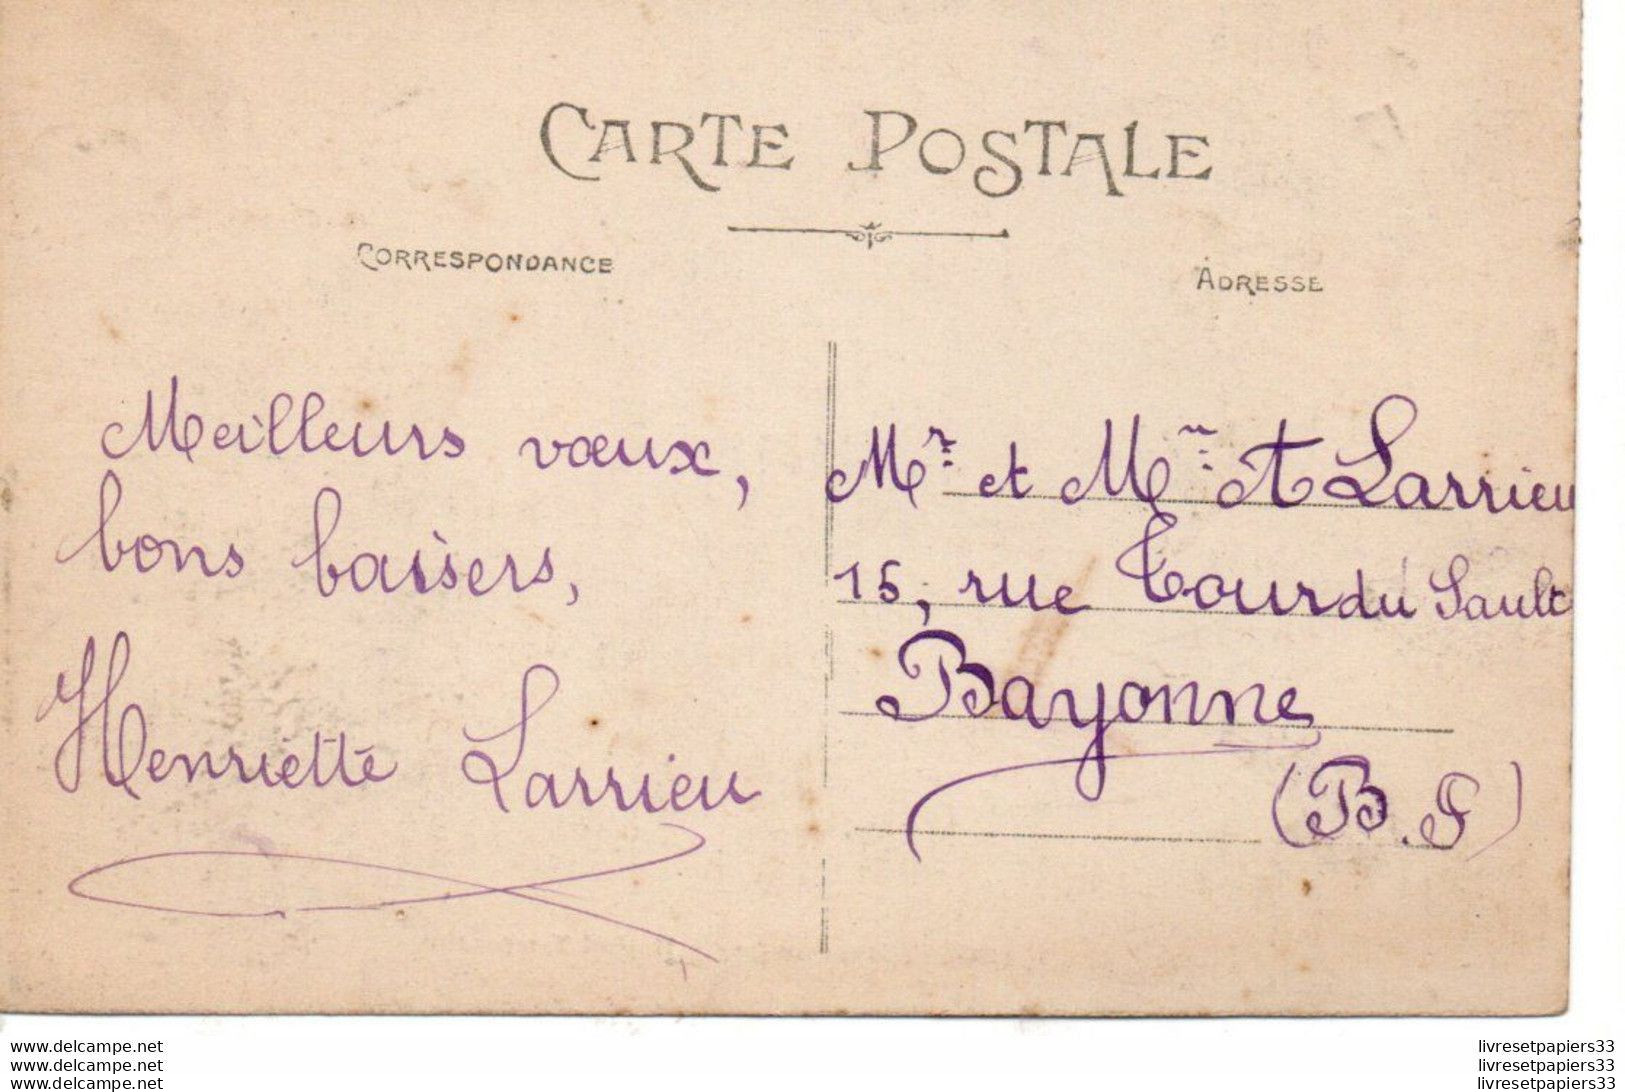 CARTE POSTALE
CORRESPONDANCE
ADRESSE
Meilleurs vœux,
bons baisers,
Henriette Larrieu
Mr. et Mme. A Larrieu
15, rue Tour du Sault
Bayonne
(B.P)
www.delcampe.net
www.delcampe.net
www.delcampe.net
livresetpapiers33
livresetpapiers33
livresetpapiers33